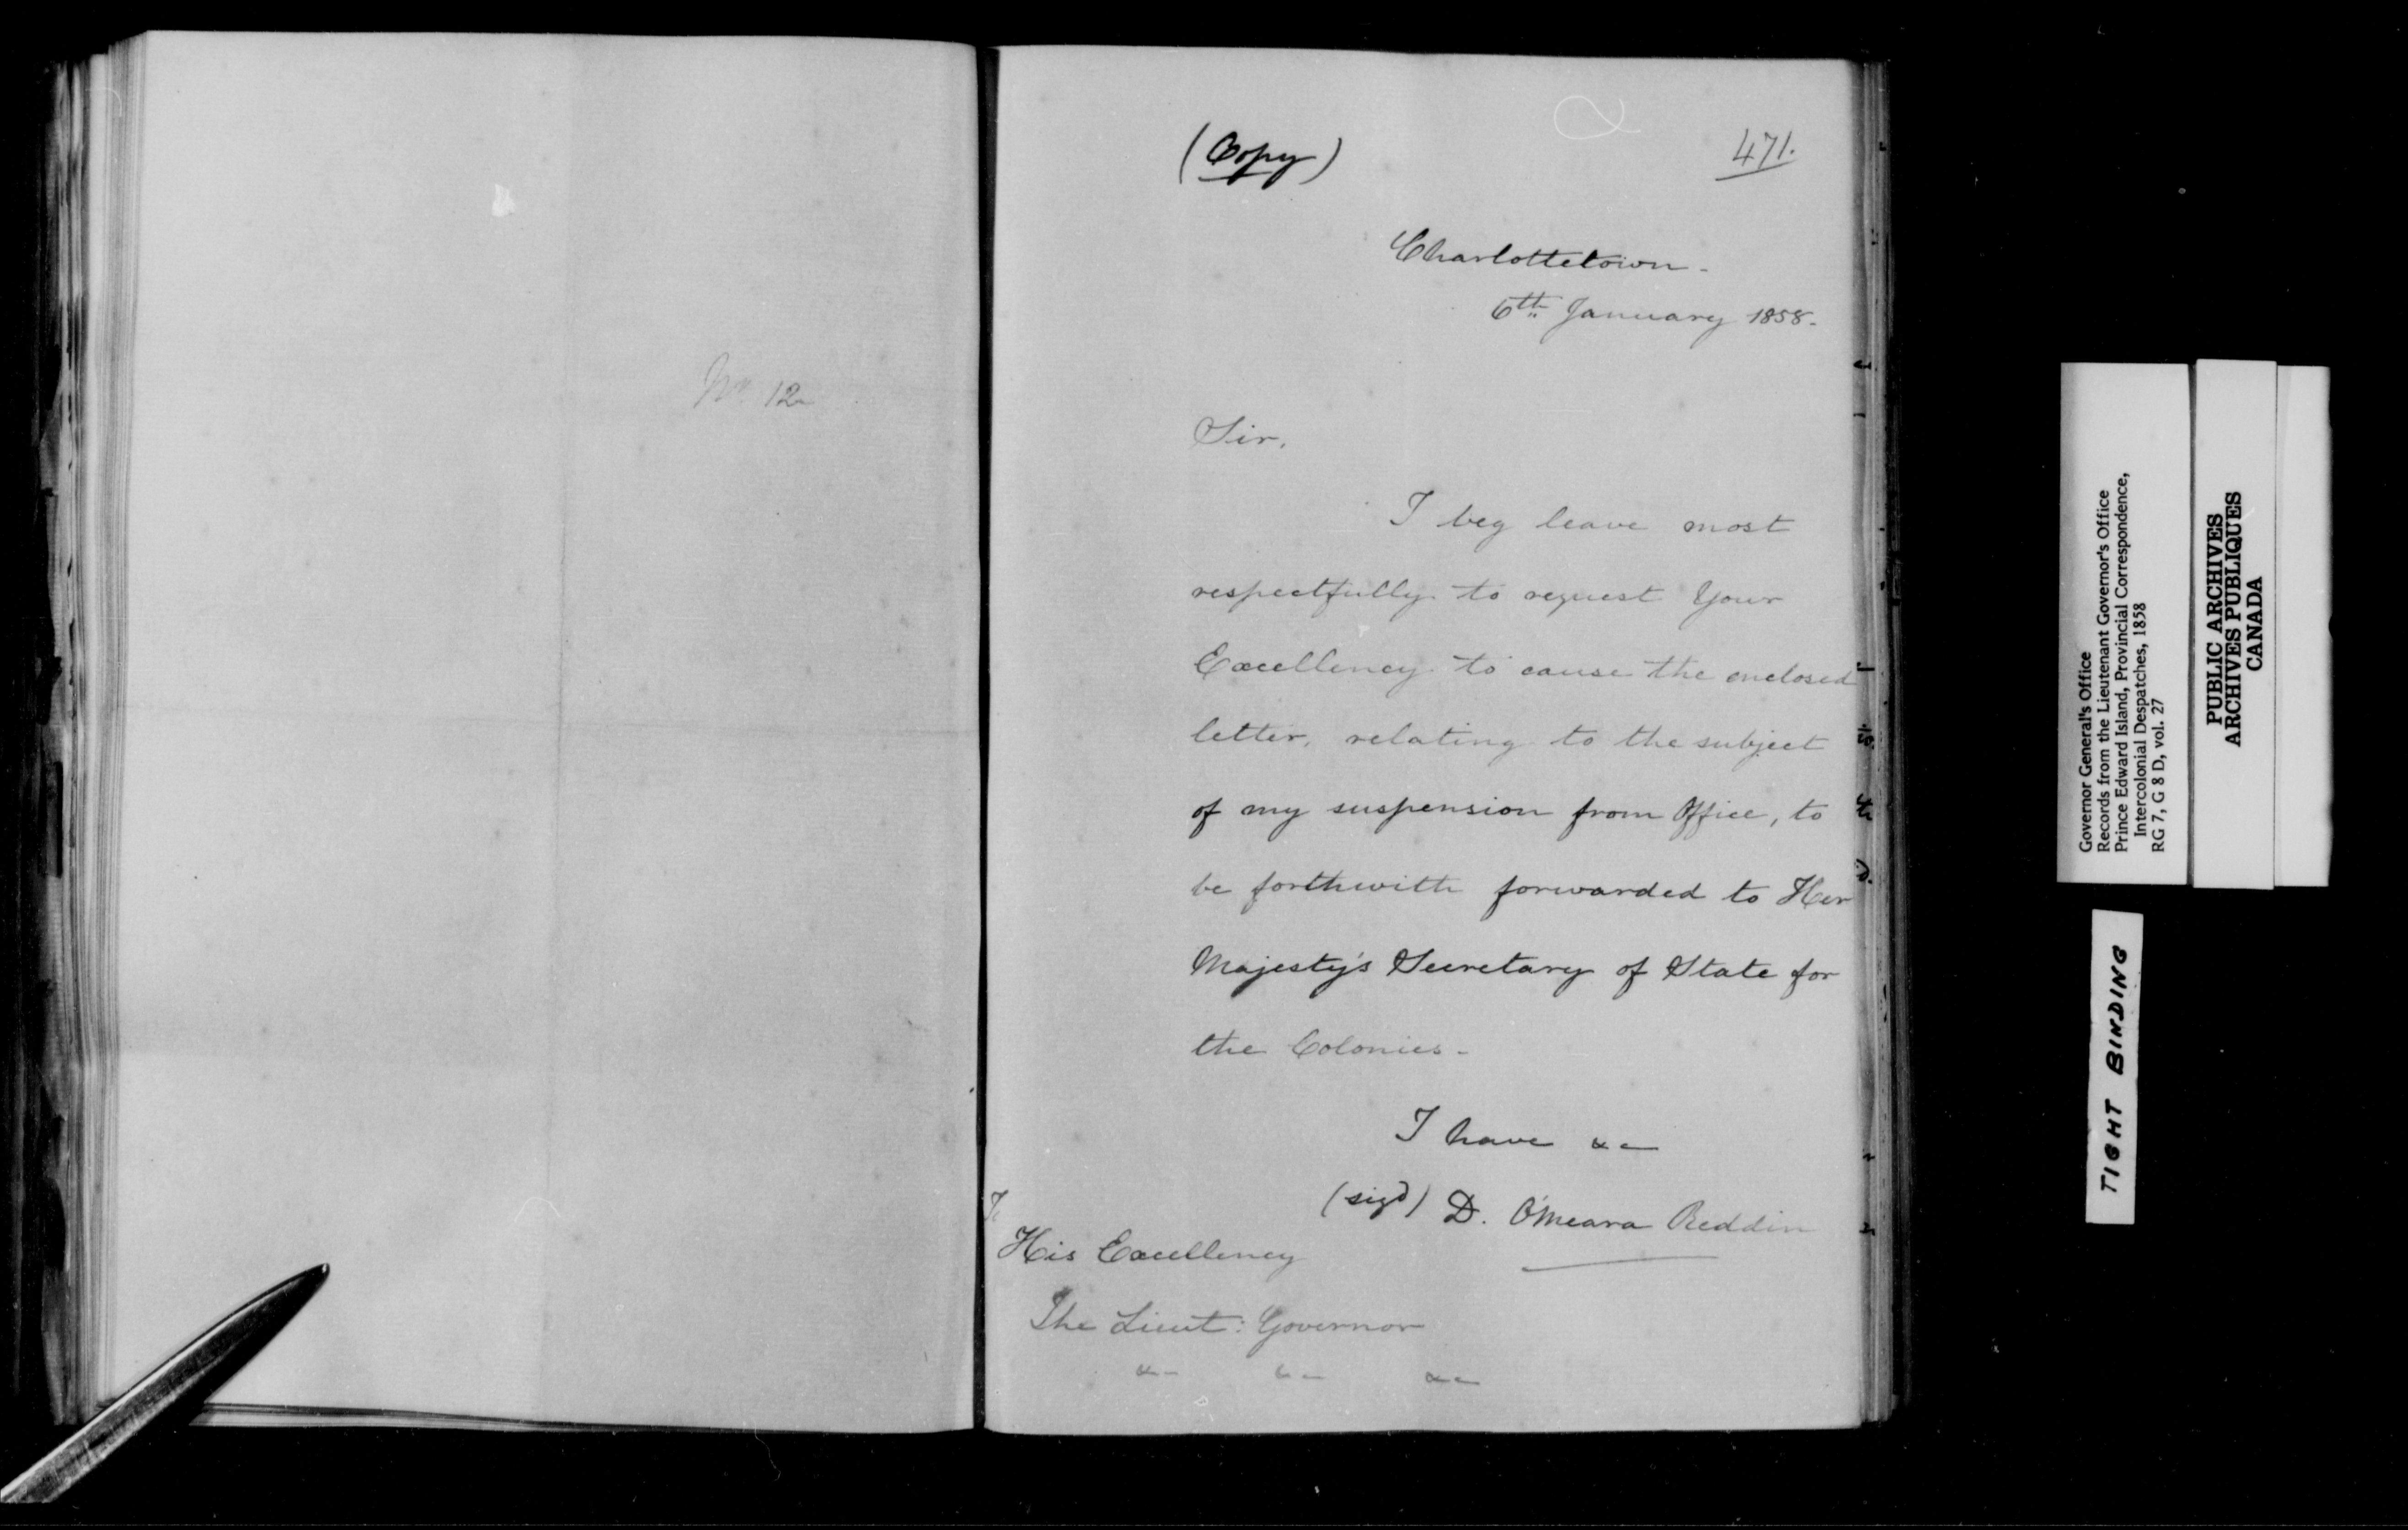 No 12
(Copy)
471.
Charlottetown -
6th January 1858.
Sir,
I beg leave most
respectfully to request Your
Excellency to cause the enclosed
letter, relating to the subject
of my suspension from Office, to
be forthwith forwarded to Her
Majesty's Secretary of State for
the Colonies -
I have &c
(sigd) D. O'Meara Reddin
To
His Excellency
The Lieut: Governor
&c &c &c
Governor General's Office
Records from the Lieutenant Governor's Office
Prince Edward Island, Provincial Correspondence,
Intercolonial Despatches, 1858
RG 7, G 8 D, vol. 27
PUBLIC ARCHIVES
ARCHIVES PUBLIQUES
CANADA
TIGHT BINDING